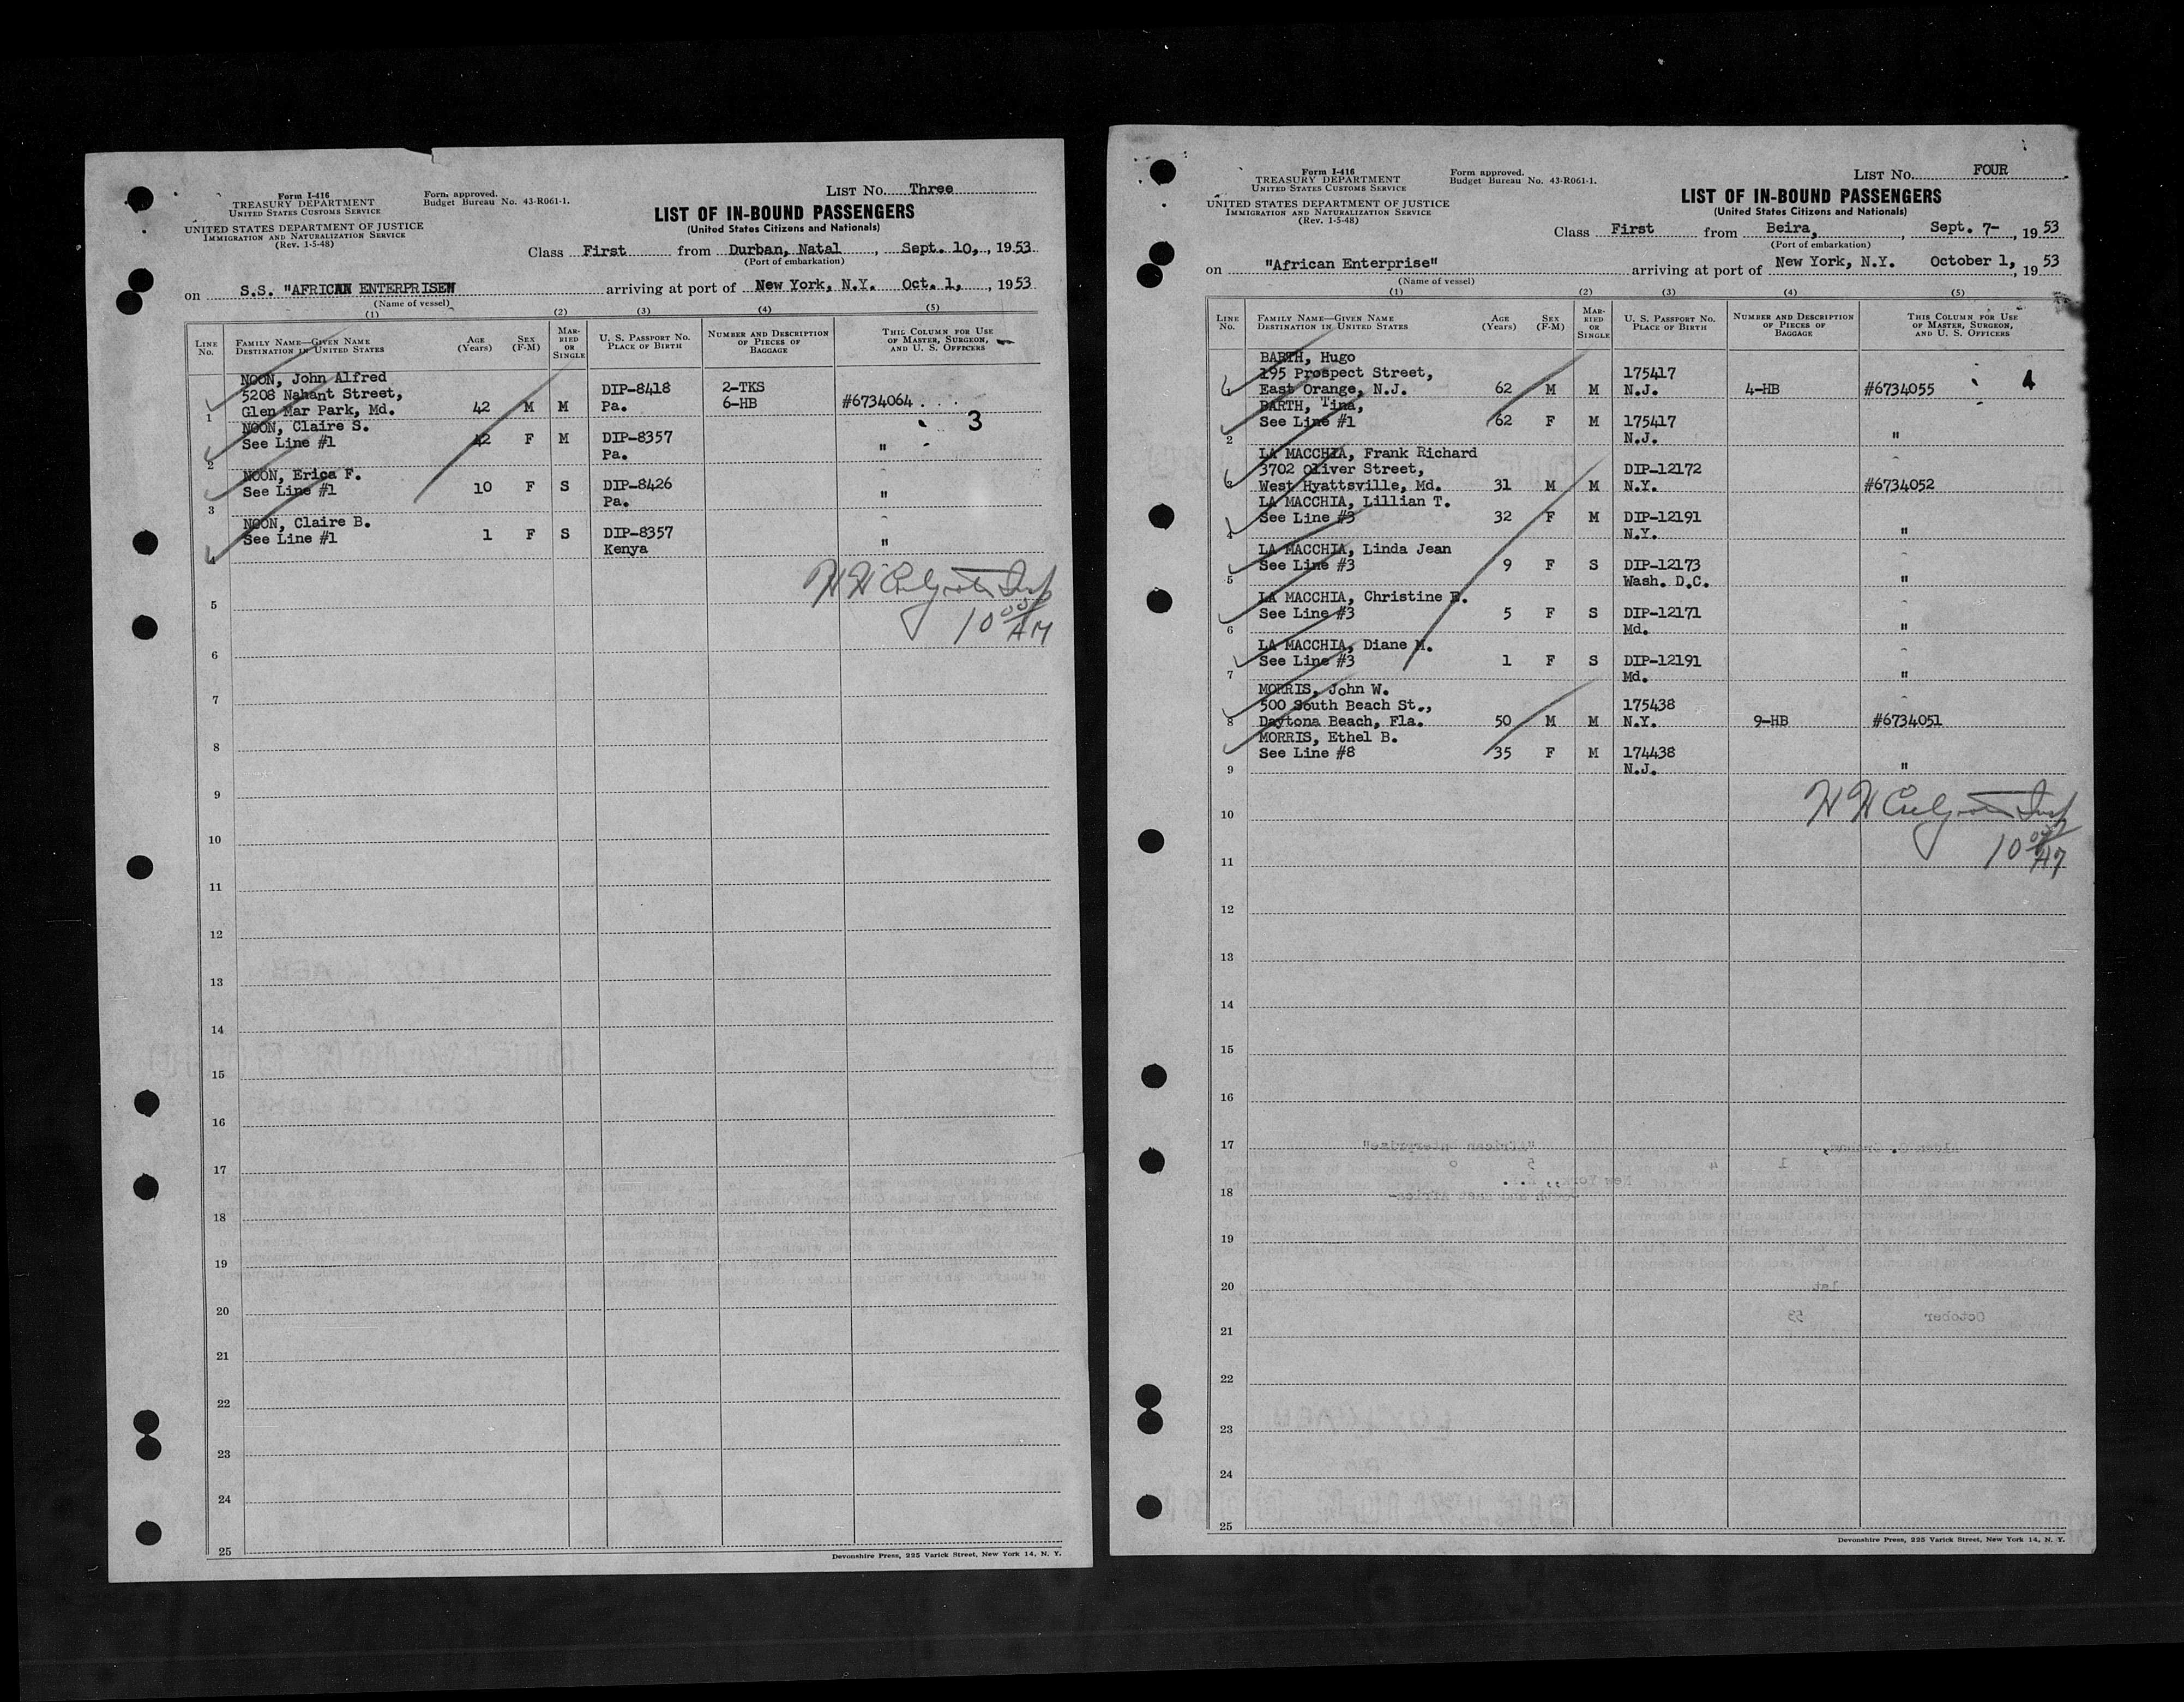 Form I-416
TREASURY DEPARTMENT
UNITED STATES CUSTOMS SERVICE
UNITED STATES DEPARTMENT OF JUSTICE
IMMIGRATION AND NATURALIZATION SERVICE
(Rev. 1-5-48)
Form approved.
Budget Bureau No. 43-R061-1.
LIST No. Three
LIST OF IN-BOUND PASSENGERS
(United States Citizens and Nationals)
Class First from Durban, Natal, Sept. 10, 1953
(Port of embarkation)
on S.S. "AFRICAN ENTERPRISE" arriving at port of New York, N.Y. Oct. 1, 1953
(Name of vessel)
(1) (2) (3) (4) (5)
LINE No. FAMILY NAME—GIVEN NAME DESTINATION IN UNITED STATES AGE (Years) SEX (F-M) MARRIED OR SINGLE U. S. PASSPORT No. PLACE OF BIRTH NUMBER AND DESCRIPTION OF PIECES OF BAGGAGE THIS COLUMN FOR USE OF MASTER, SURGEON, AND U. S. OFFICERS
NOON, John Alfred
5208 Nahant Street, DIP-8418 2-TKS
1 Glen Mar Park, Md. 42 M M Pa. 6-HB #6734064
3
NOON, Claire S.
2 See Line #1 42 F M DIP-8357 "
Pa.
NOON, Erica F.
3 See Line #1 10 F S DIP-8426 "
Pa.
NOON, Claire B.
4 See Line #1 1 F S DIP-8357 "
Kenya
5
10 00 AM
6
7
8
9
10
11
12
13
14
15
16
17
18
19
20
21
22
23
24
25
Devonshire Press, 225 Varick Street, New York 14, N. Y.
Form I-416
TREASURY DEPARTMENT
UNITED STATES CUSTOMS SERVICE
UNITED STATES DEPARTMENT OF JUSTICE
IMMIGRATION AND NATURALIZATION SERVICE
(Rev. 1-5-48)
Form approved.
Budget Bureau No. 43-R061-1.
LIST No. FOUR
LIST OF IN-BOUND PASSENGERS
(United States Citizens and Nationals)
Class First from Beira, , Sept. 7-, 1953
(Port of embarkation)
on "African Enterprise" arriving at port of New York, N.Y. October 1, 1953
(Name of vessel)
(1) (2) (3) (4) (5)
LINE No. FAMILY NAME—GIVEN NAME DESTINATION IN UNITED STATES AGE (Years) SEX (F-M) MARRIED OR SINGLE U. S. PASSPORT No. PLACE OF BIRTH NUMBER AND DESCRIPTION OF PIECES OF BAGGAGE THIS COLUMN FOR USE OF MASTER, SURGEON, AND U. S. OFFICERS
BARTH, Hugo
195 Prospect Street, 175417
1 East Orange, N.J. 62 M M N.J. 4-HB #6734055 4
BARTH, Tina,
2 See Line #1 62 F M 175417
N.J. "
LA MACCHIA, Frank Richard
3702 Oliver Street, DIP-12172
West Hyattsville, Md. 31 M M N.Y. #6734052
LA MACCHIA, Lillian T.
4 See Line #3 32 F M DIP-12191
N.Y. "
LA MACCHIA, Linda Jean
5 See Line #3 9 F S DIP-12173
Wash. D.C. "
LA MACCHIA, Christine E.
6 See Line #3 5 F S DIP-12171
Md. "
LA MACCHIA, Diane M.
7 See Line #3 1 F S DIP-12191
Md. "
MORRIS, John W.
500 South Beach St., 175438
8 Daytona Beach, Fla. 50 M M N.Y. 9-HB #6734051
MORRIS, Ethel B.
9 See Line #8 35 F M 174438
N.J. "
10
10 00
11
12
13
14
15
16
17
18
19
20
21
22
23
24
25
Devonshire Press, 225 Varick Street, New York 14, N. Y.